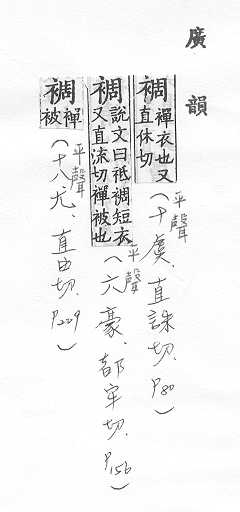 廣韻
裯襌衣也又直休切(平聲十虞、直誅切、P80)
裯說文曰衹裯短衣又直流切襌被也(平聲六豪、都牢切、P156)
裯襌被(平聲十八尤、直由切、P209)